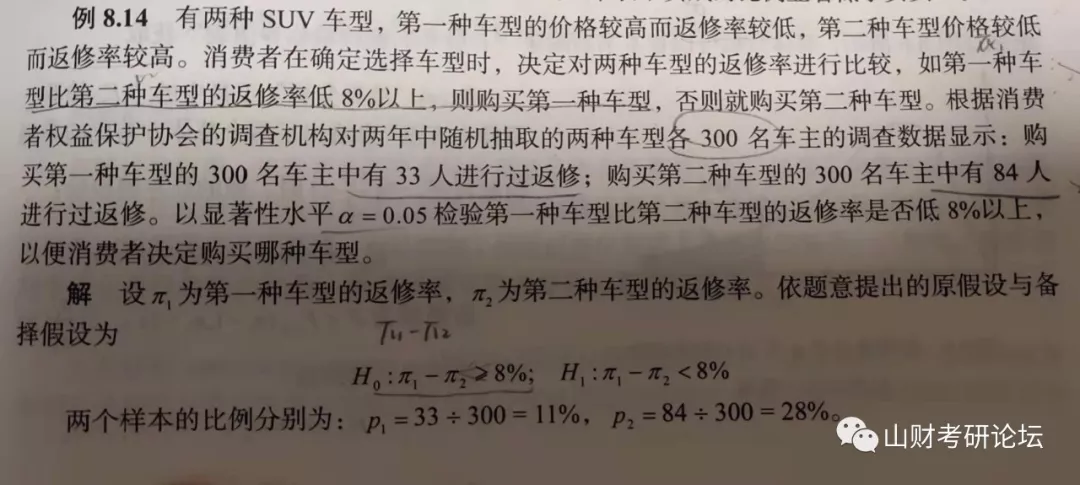 例 8.14 有两种 SUV 车型，第一种车型的价格较高而返修率较低，第二种车型价格较低
而返修率较高。消费者在确定选择车型时，决定对两种车型的返修率进行比较，如第一种车
型比第二种车型的返修率低 8%以上，则购买第一种车型，否则就购买第二种车型。根据消费
者权益保护协会的调查机构对两年中随机抽取的两种车型各 300 名车主的调查数据显示：购
买第一种车型的 300 名车主中有 33 人进行过返修；购买第二种车型的 300 名车主中有 84 人
进行过返修。以显著性水平 α = 0.05 检验第一种车型比第二种车型的返修率是否低 8%以上，
以便消费者决定购买哪种车型。
解 设 π₁ 为第一种车型的返修率，π₂ 为第二种车型的返修率。依题意提出的原假设与备
择假设为
π₁-π₂
H₀ : π₁ − π₂ ≥ 8%; H₁ : π₁ − π₂ < 8%
两个样本的比例分别为：p₁ = 33 ÷ 300 = 11%，p₂ = 84 ÷ 300 = 28%。
山财考研论坛